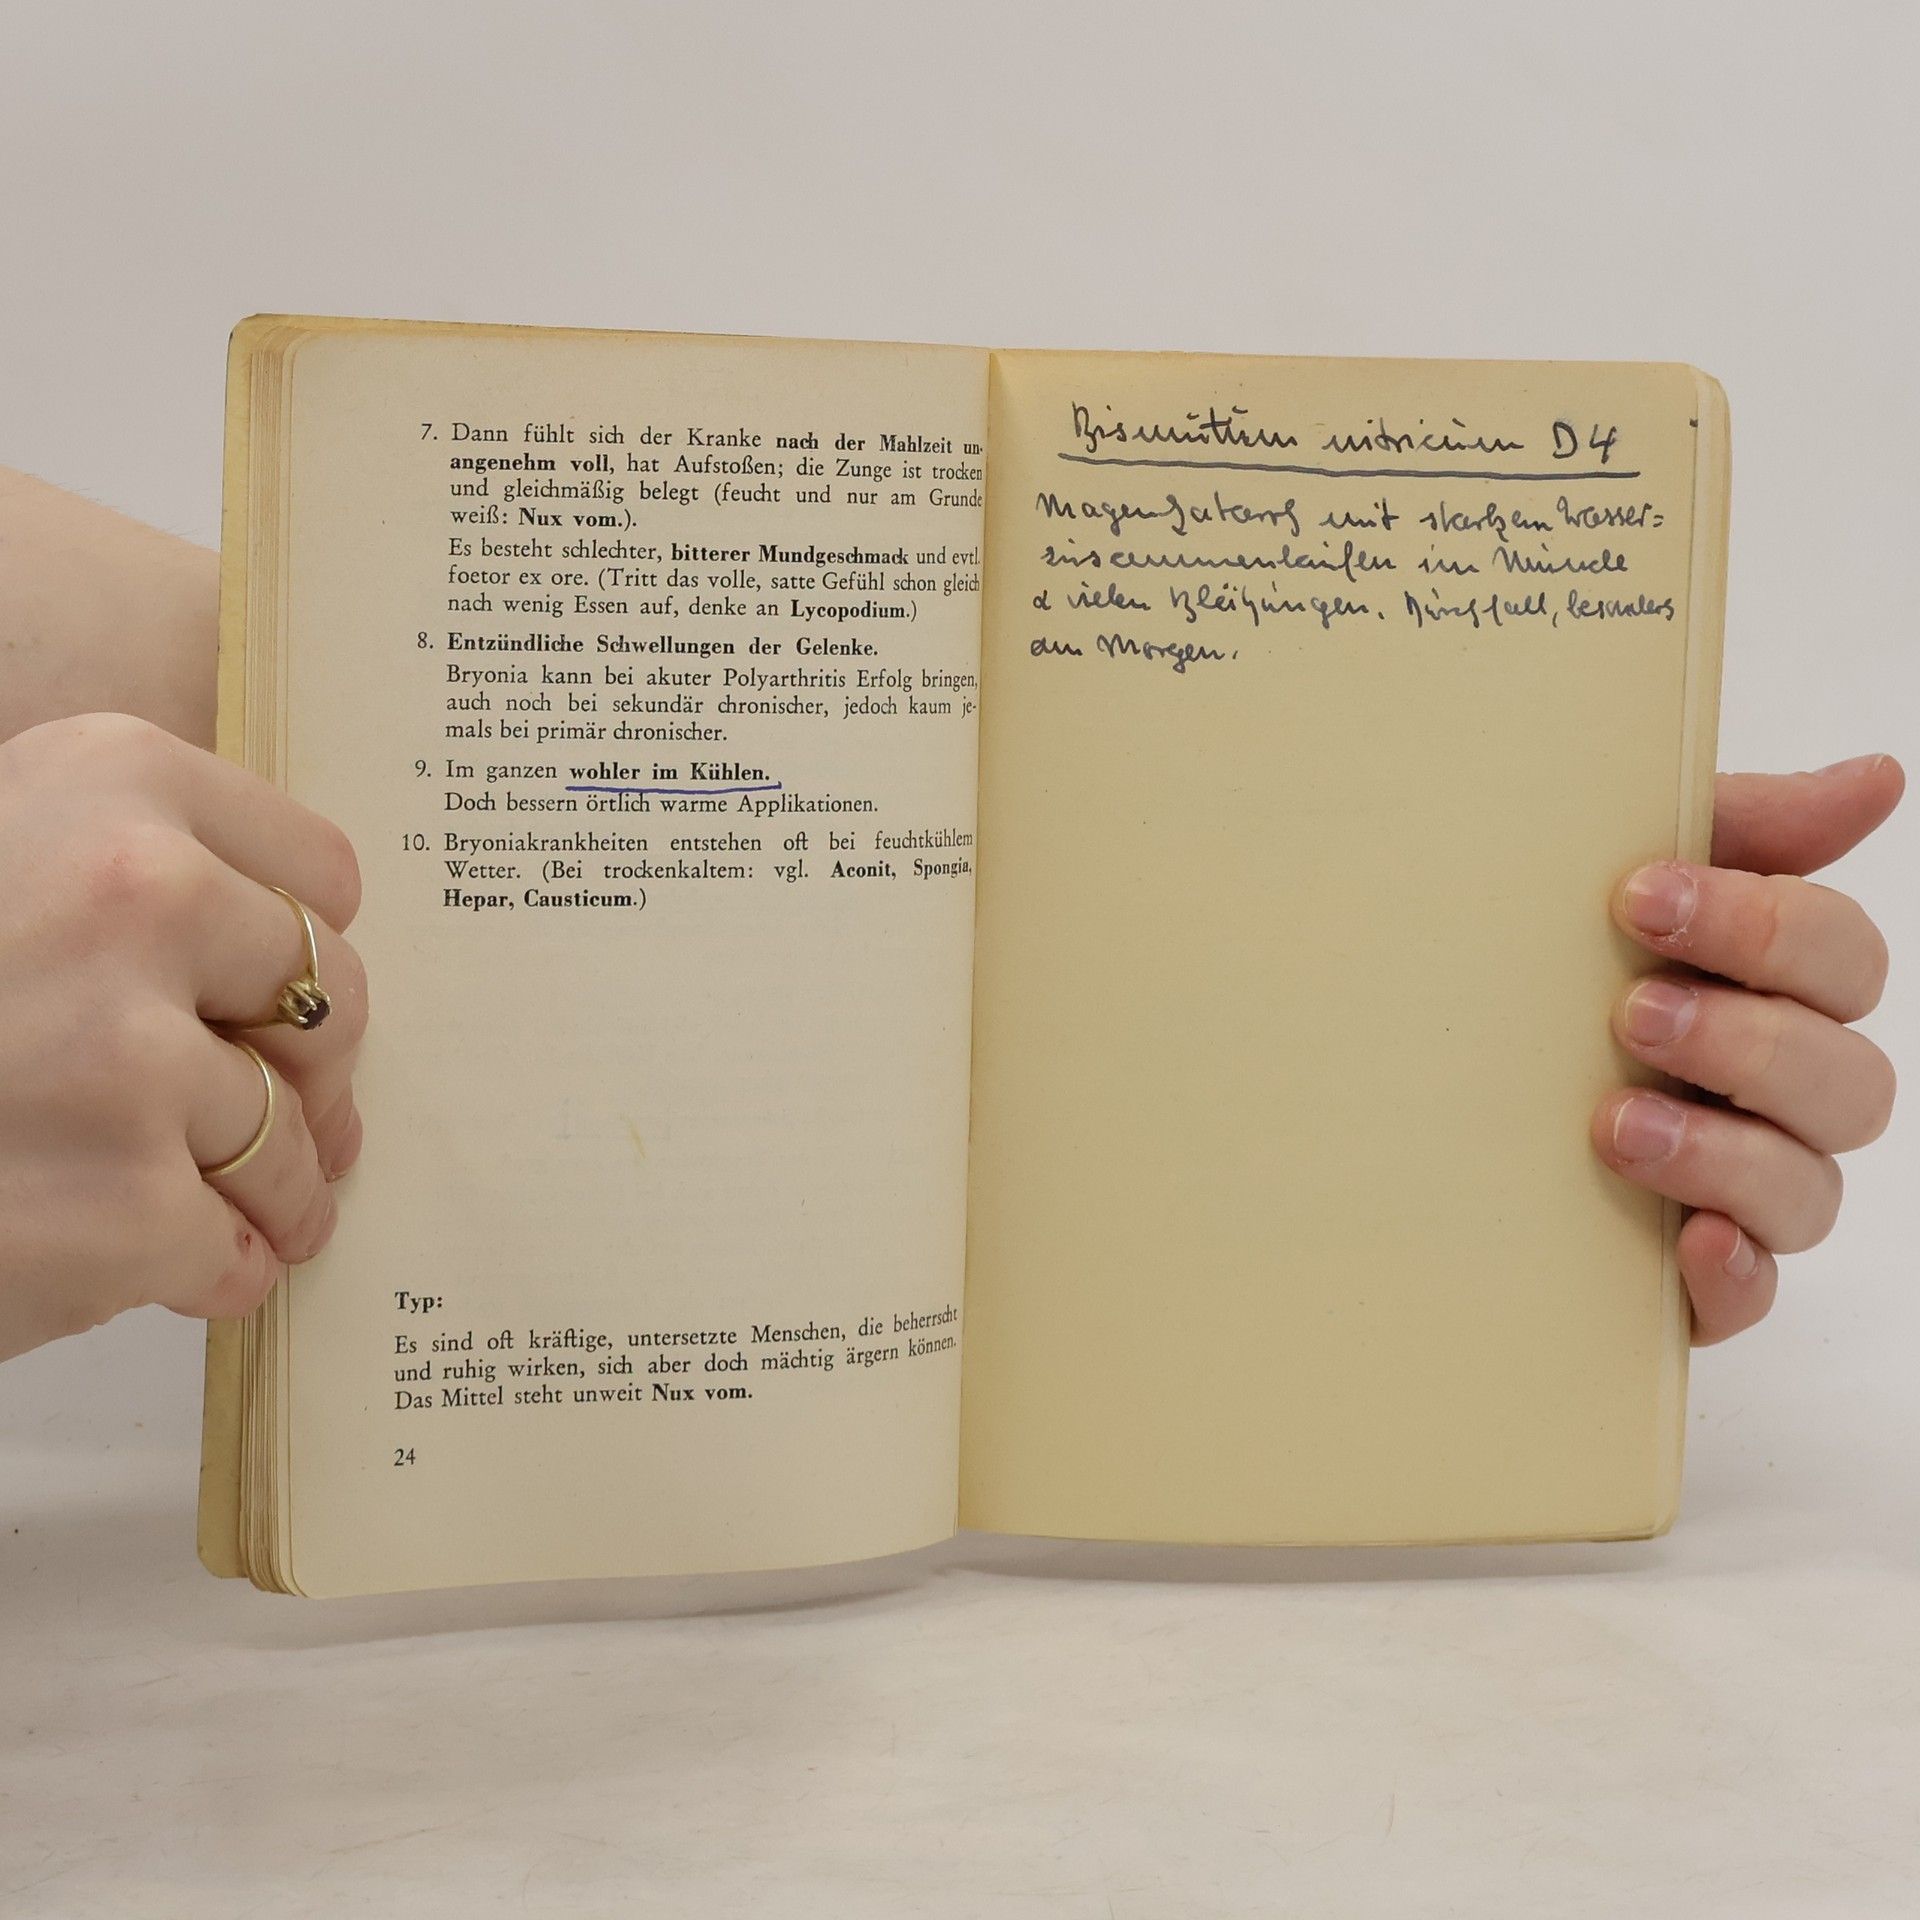 7. Dann fühlt sich der Kranke nach der Mahlzeit un-
angenehm voll, hat Aufstoßen; die Zunge ist trocken
und gleichmäßig belegt (feucht und nur am Grunde
weiß: Nux vom.).
Es besteht schlechter, bitterer Mundgeschmack und evtl.
foetor ex ore. (Tritt das volle, satte Gefühl schon gleich
nach wenig Essen auf, denke an Lycopodium.)
8. Entzündliche Schwellungen der Gelenke.
Bryonia kann bei akuter Polyarthritis Erfolg bringen,
auch noch bei sekundär chronischer, jedoch kaum je-
mals bei primär chronischer.
9. Im ganzen wohler im Kühlen.
Doch bessern örtlich warme Applikationen.
10. Bryoniakrankheiten entstehen oft bei feuchtkühlem
Wetter. (Bei trockenkaltem: vgl. Aconit, Spongia,
Hepar, Causticum.)
Typ:
Es sind oft kräftige, untersetzte Menschen, die beherrscht
und ruhig wirken, sich aber doch mächtig ärgern können.
Das Mittel steht unweit Nux vom.
24
Bismutum nitricum D4
Magenkatarrh mit starkem Wasser=
zusammenlaufen im Munde
& vielen Blähungen. Durchfall, besonders
am Morgen.